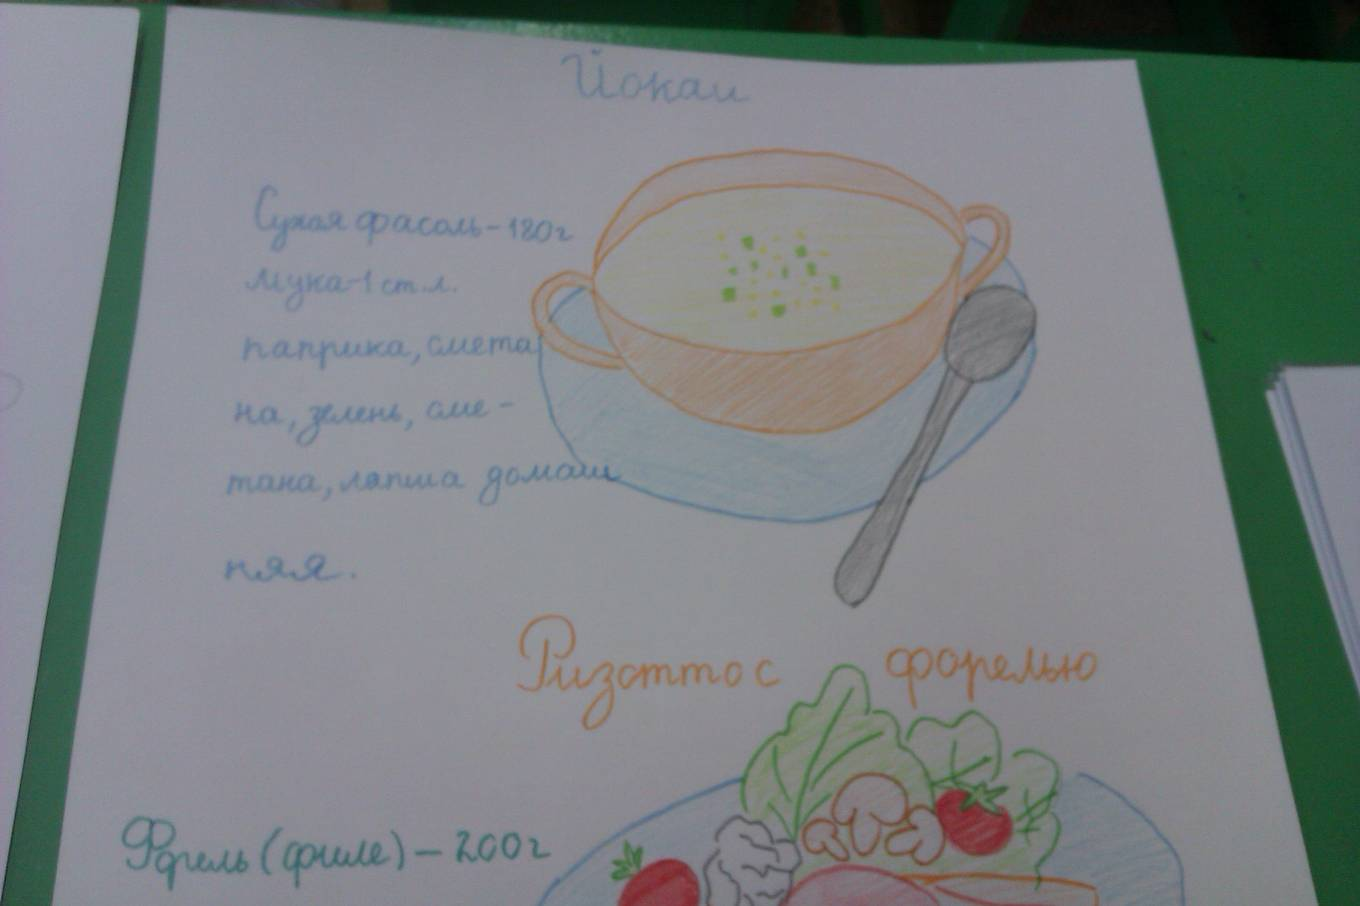 Йокаи
Сухая фасоль-180г
Мука-1 ст.л.
паприка, смета
на, зелень, сме-
тана, лапша домаш
няя.
Ризотто с форелью
Форель (филе) - 200г